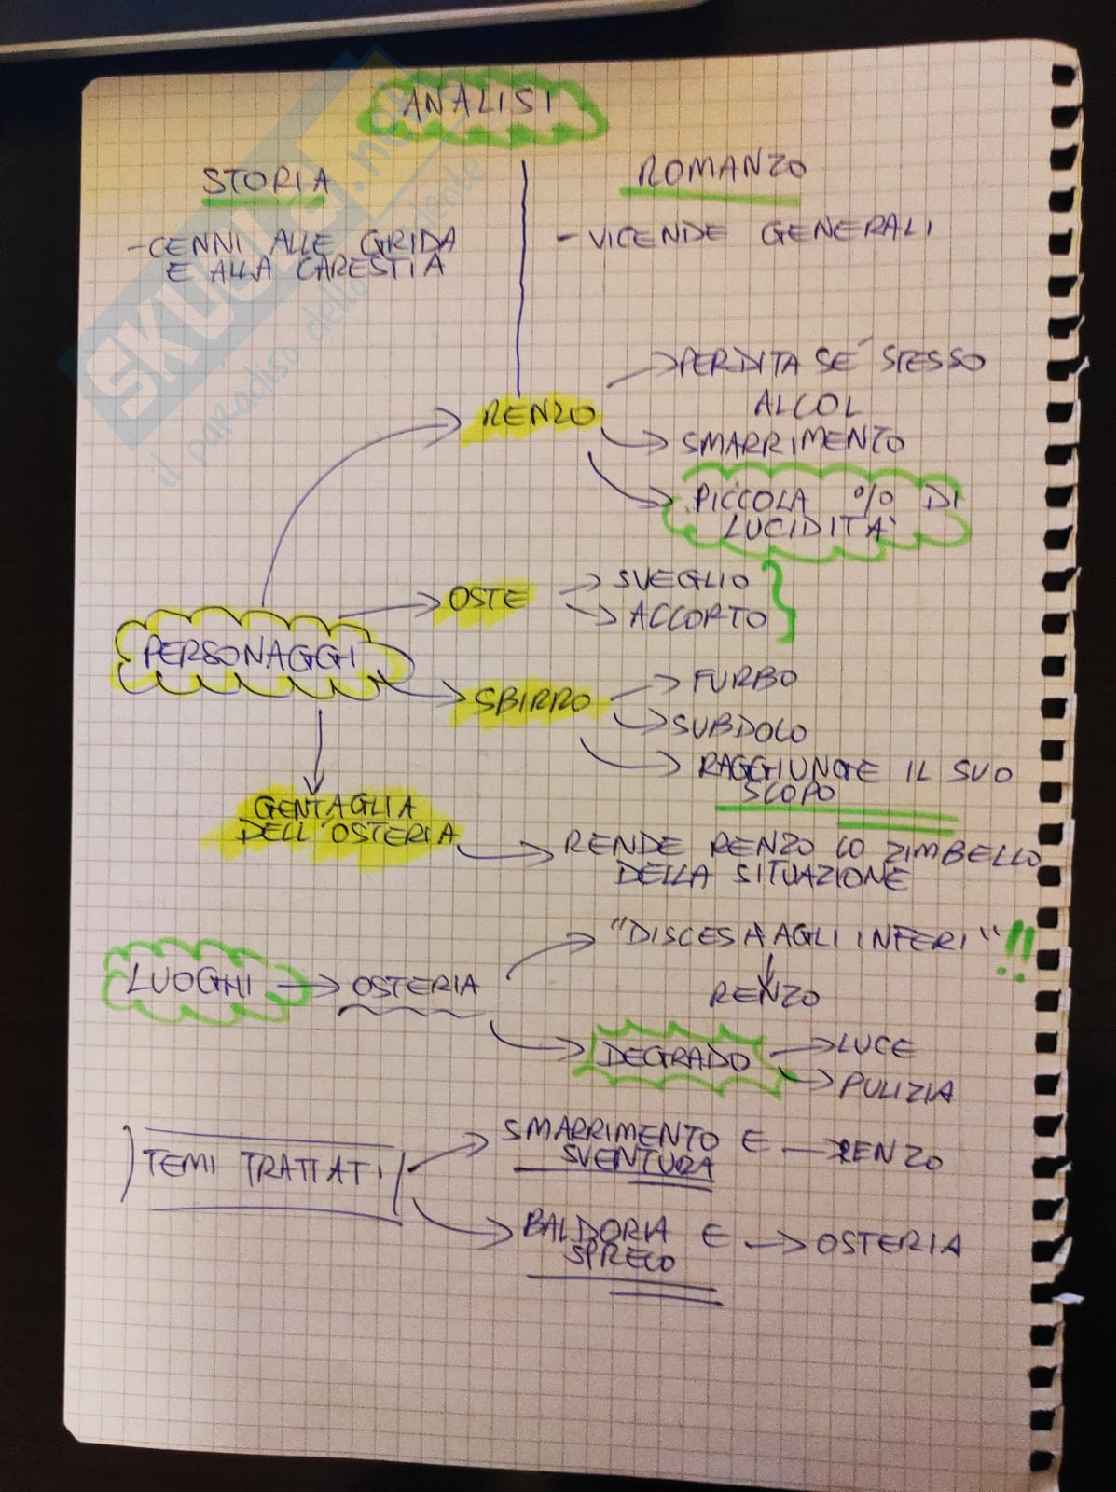 ANALISI
STORIA
ROMANZO
- CENNI ALLE GRIDA
E ALLA CARESTIA
- VICENDE GENERALI
RENZO
PERDITA SÉ STESSO
ALCOL
SMARRIMENTO
PICCOLA % DI
LUCIDITÀ
PERSONAGGI
OSTE
SVEGLIO
ACCORTO
SBIRRO
FURBO
SUBDOLO
RAGGIUNGE IL SUO
SCOPO
GENTAGLIA
DELL'OSTERIA
RENDE RENZO LO ZIMBELLO
DELLA SITUAZIONE
LUOGHI
OSTERIA
"DISCESA AGLI INFERI" !!
RENZO
DEGRADO
LUCE
PULIZIA
TEMI TRATTATI
SMARRIMENTO E
SVENTURA
RENZO
BALDORIA E
SPRECO
OSTERIA
SKUOLA.net
il paradiso dello studente